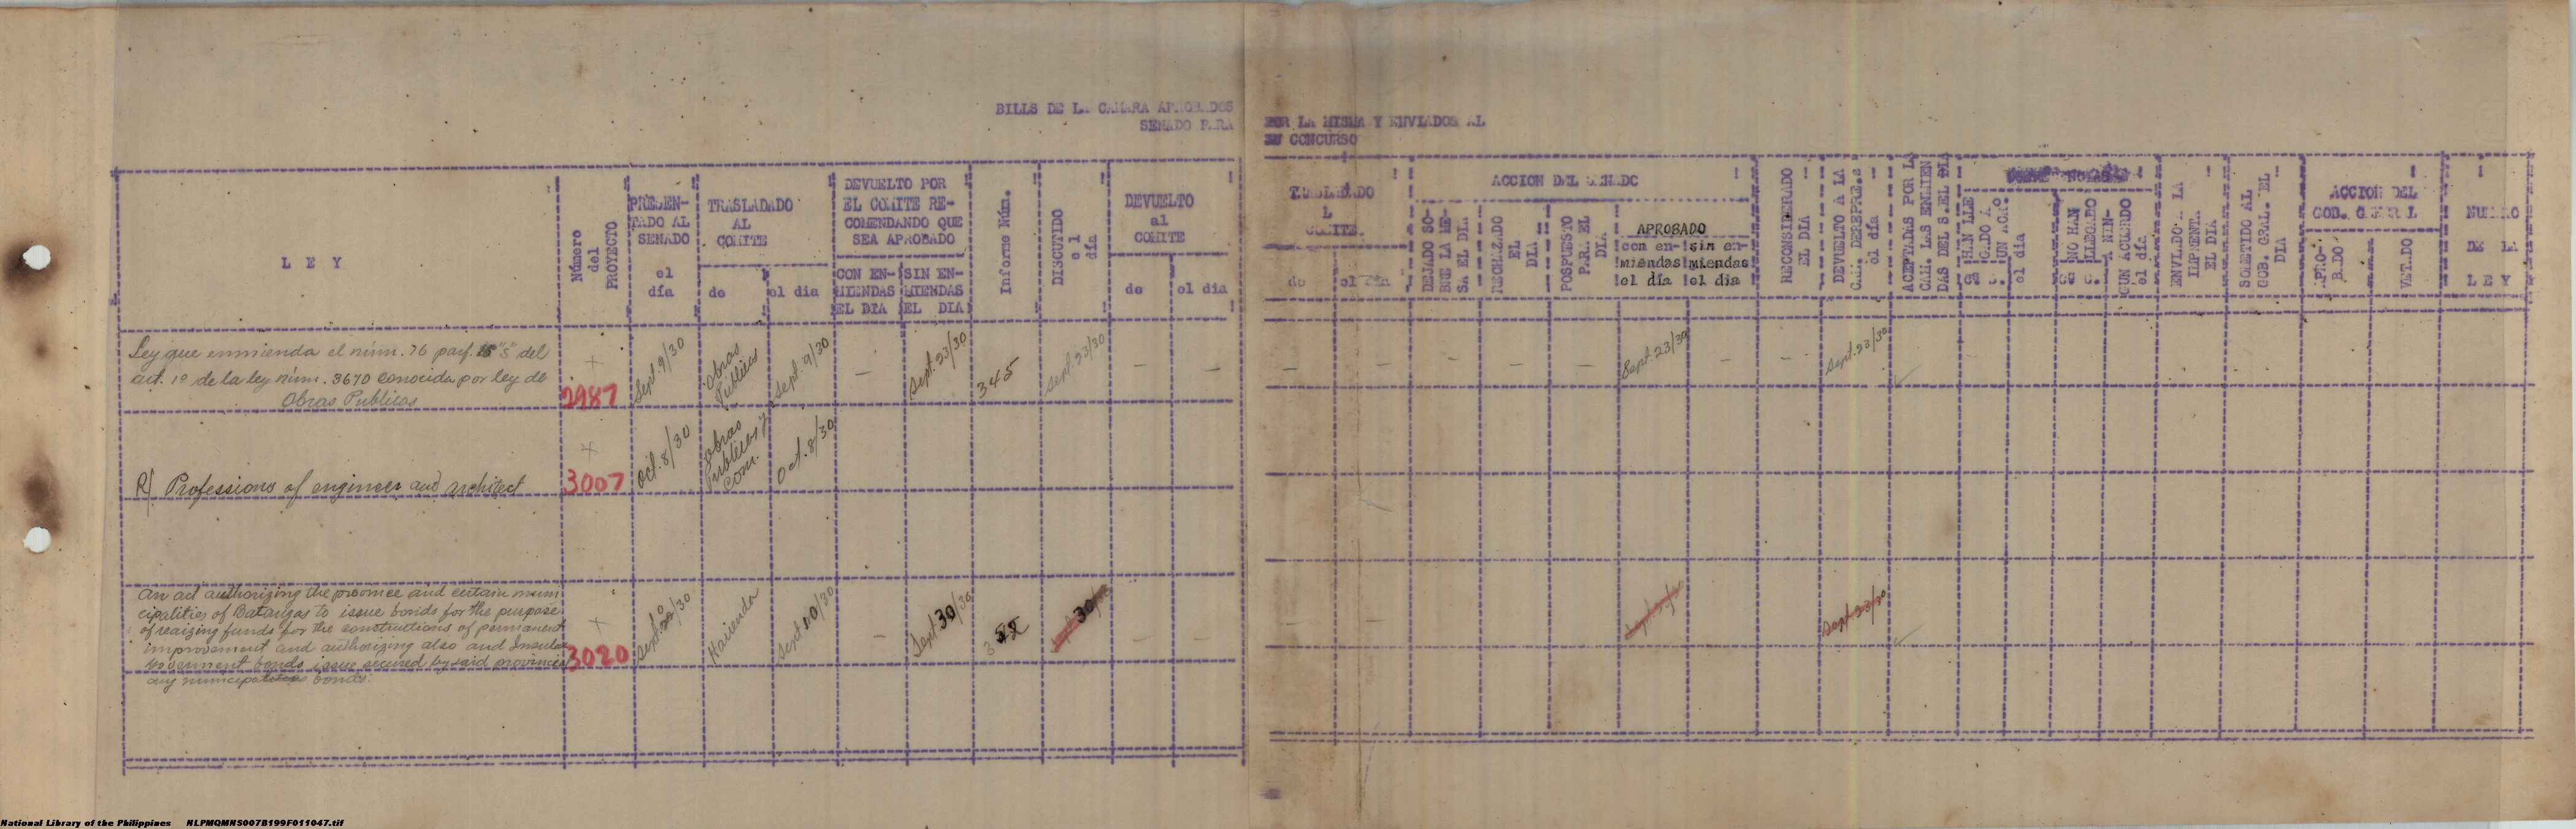 BILLS DE LA CAMARA APROBADOS
SENADO PARA
POR LA MISMA Y ENVIADOS AL
SU CONCURSO
L E Y
Número
del
PROYECTO
PRESEN-
TADO AL
SENADO
el
día
TRASLADADO
AL
COMITE
de
el dia
DEVUELTO POR
EL COMITE RE-
COMENDANDO QUE
SEA APROBADO
CON EN-
MIENDAS
EL DIA
SIN EN-
MIENDAS
EL DIA
Informe Núm.
DISCUTIDO
el
día
DEVUELTO
al
COMITE
de
el dia
TRASLADADO
COMITE.
de
el día
DEJADO SO-
BRE LA ME-
SA EL DIA
ACCION DEL SENADO
RECHAZADO
EL
DIA
POSPUESTO
PARA EL
DIA
APROBADO
con en-
miendas
el día
sin en-
miendas
el dia
RECONSIDERADO
EL DIA
DEVUELTO A LA
el día
ACEPTADAS POR LA
CAM. LAS ENMIEN
DAS DEL S. EL DIA
el dia
NO HAN
LLEGADO
A NIN-
GUN ACUERDO
el día
ENVIADO A LA
IMPRENTA
EL DIA
SOMETIDO AL
GOB. GRAL. EL
DIA
ACCION DEL
GOB. GENERAL
APRO-
BADO
VETADO
NUMERO
DE LA
LEY
Ley que enmienda el núm. 76 parf. "S" del
art. 1º de la ley núm. 3670 conocida por ley de
Obras Publicas
+
2987
Sept. 9/30
Obras
Publicas
Sept. 9/30
—
Sept. 23/30
345
Sept. 23/30
— — — — — — —
Sept. 23/30
—
Sept. 23/30
R/ Professions of engineer and architect
+
3007
Oct. 8/30
Obras
Publicas y
Com.
Oct. 8/30
An act authorizing the province and certain muni
cipalities of Batangas to issue bonds for the purpose
of reaizing funds for the constructions of permanent
improvement and authorizing also and Insular
Government bonds issue secured by said provinces
any municipalities bonds.
+
3020
Hacienda
Sept. 10/30
—
Sept. 30/30
30/30
— — — —
Sept. 23/30
National Library of the Philippines NLPMQMNS007B199F011047.tif